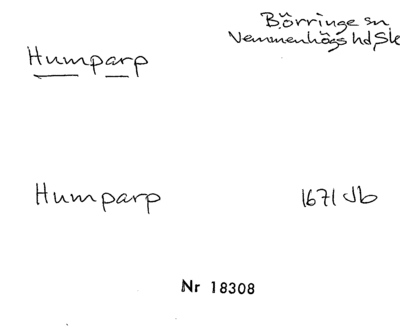 Börringe sn
Vemmenhögs hd Sk
Humparp
Humparp 1671 Jb
Nr 18308